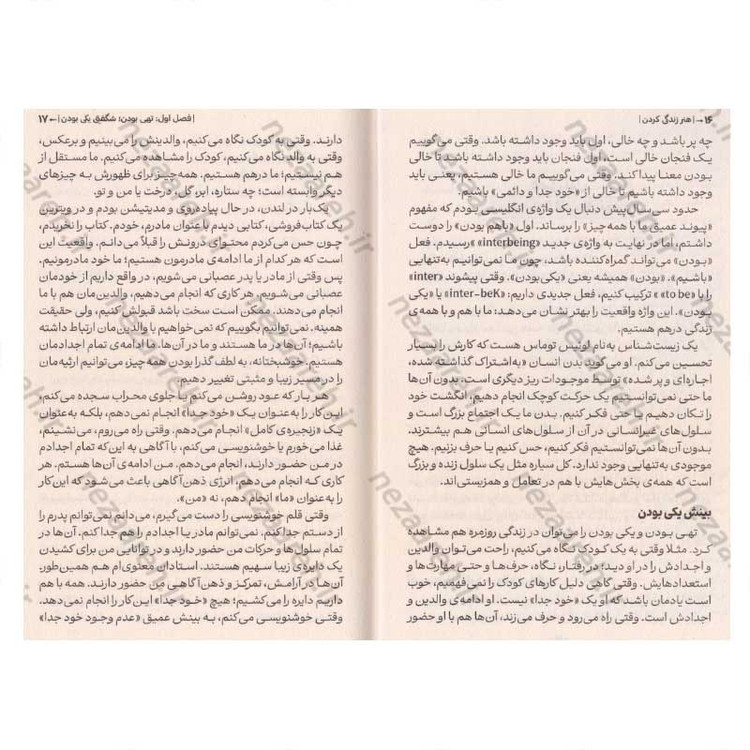 ۱۶ــ | هنر زندگی کردن |
چه پر باشد و چه خالی، اول باید وجود داشته باشد. وقتی می‌گوییم
یک فنجان خالی است، اول فنجان باید وجود داشته باشد تا خالی
بودن معنا پیدا کند. وقتی می‌گوییم ما خالی هستیم، یعنی باید
وجود داشته باشیم تا خالی از «خود جدا و دائمی» باشیم.
حدود سی‌سال‌پیش دنبال یک واژه‌ی انگلیسی بودم که مفهوم
«پیوند عمیق ما با همه‌چیز» را برساند. اول «باهم بودن» را دوست
داشتم، اما در نهایت به واژه‌ی جدید «interbeing» رسیدم. فعل
«بودن» می‌تواند گمراه‌کننده باشد، چون ما نمی‌توانیم به‌تنهایی
«باشیم». «بودن» همیشه یعنی «یکی‌بودن». وقتی پیشوند «inter»
را با «to be» ترکیب کنیم، فعل جدیدی داریم: «inter-beK» یا «یکی
بودن». این واژه واقعیت را بهتر نشان می‌دهد: ما با هم و با همه‌ی
زندگی درهم هستیم.
یک زیست‌شناس به‌نام لوئیس توماس هست که کارش را بسیار
تحسین می‌کنم. او می‌گوید بدن انسان «به‌اشتراک گذاشته شده،
اجاره‌ای و پر شده» توسط موجودات ریز دیگری است، بدون آن‌ها
ما حتی نمی‌توانستیم یک حرکت کوچک انجام دهیم، انگشت خود
را تکان دهیم یا حتی فکر کنیم. بدن ما یک اجتماع بزرگ است و
سلول‌های غیرانسانی در آن از سلول‌های انسانی هم بیشترند.
بدون آن‌ها نمی‌توانستیم فکر کنیم، حس کنیم یا حرف بزنیم. هیچ
موجودی به‌تنهایی وجود ندارد. کل سیاره مثل یک سلول زنده و بزرگ
است که همه‌ی بخش‌هایش با هم در تعامل و همزیستی‌اند.
بینش یکی بودن
تهی بودن و یکی بودن را می‌توان در زندگی روزمره هم مشاهده
کرد. مثلا وقتی به یک کودک نگاه می‌کنیم، راحت می‌توان والدین
و اجدادش را در او دید؛ در رفتار، نگاه، حرف‌ها و حتی مهارت‌ها و
استعدادهایش. وقتی گاهی دلیل کارهای کودک را نمی‌فهمیم، خوب
است یادمان باشد که او یک «خود جدا» نیست. او ادامه‌ی والدین و
اجدادش است. وقتی راه می‌رود و حرف می‌زند، آن‌ها هم با او حضور
| فصل اول: تهی بودن؛ شگفتی یکی بودن | ــ۱۷
دارند. وقتی به کودک نگاه می‌کنیم، والدینش را می‌بینیم و برعکس،
وقتی به والد نگاه می‌کنیم، کودک را مشاهده می‌کنیم. ما مستقل از
هم نیستیم؛ ما درهم هستیم. همه‌چیز برای ظهورش به چیزهای
دیگر وابسته است؛ چه ستاره، ابر، گل، درخت یا من و تو.
یک‌بار در لندن، در حال پیاده‌روی و مدیتیشن بودم و در ویترین
یک کتاب‌فروشی، کتابی دیدم با عنوان مادرم، خودم. کتاب را نخریدم،
چون حس می‌کردم محتوای درونش را قبلاً می‌دانم. واقعیت این
است که هر کدام از ما ادامه‌ی مادرمون هستیم؛ ما خود مادرمونیم.
پس وقتی از مادر یا پدر عصبانی می‌شویم، در واقع داریم از خودمان
عصبانی می‌شویم. هر کاری که انجام می‌دهیم، والدین‌مان هم با ما
انجام می‌دهند. ممکن است سخت باشد قبولش کنیم، ولی حقیقت
همینه. نمی‌توانیم بگوییم که نمی‌خواهیم با والدین‌مان ارتباط داشته
باشیم؛ آن‌ها در ما هستند و ما در آن‌ها. ما ادامه‌ی تمام اجدادمان
هستیم. خوشبختانه، به لطف گذرا بودن همه‌چیز، می‌توانیم ارثیه‌مان
را در مسیر زیبا و مثبتی تغییر دهیم.
هر بار که عود روشن می‌کنم یا جلوی محراب سجده می‌کنم،
این کار را به‌عنوان یک «خود جدا» انجام نمی‌دهم، بلکه به‌عنوان
یک «زنجیره‌ی کامل» انجام می‌دهم. وقتی راه می‌روم، می‌نشینم،
غذا می‌خورم یا خوشنویسی می‌کنم، با آگاهی به این که تمام اجدادم
در من حضور دارند، انجام می‌دهم. من ادامه‌ی آن‌ها هستم. هر
کاری که انجام می‌دهم، انرژی ذهن‌آگاهی باعث می‌شود که این‌کار
را به‌عنوان «ما» انجام دهم، نه «من».
وقتی قلم خوشنویسی را دست می‌گیرم، می‌دانم نمی‌توانم پدرم را
از دستم جدا کنم. نمی‌توانم مادر یا اجدادم را هم جدا کنم. آن‌ها در
تمام سلول‌ها و حرکات من حضور دارند و در توانایی من برای کشیدن
یک دایره‌ی زیبا سهیم هستند. استادان معنوی‌ام هم همین‌طور.
آن‌ها در آرامش، تمرکز و ذهن‌آگاهی من حضور دارند. همه با هم
داریم دایره را می‌کشیم؛ هیچ «خود جدا» این‌کار را انجام نمی‌دهد.
وقتی خوشنویسی می‌کنم، به بینش عمیق «عدم وجود خود جدا»
nezaareh.ir